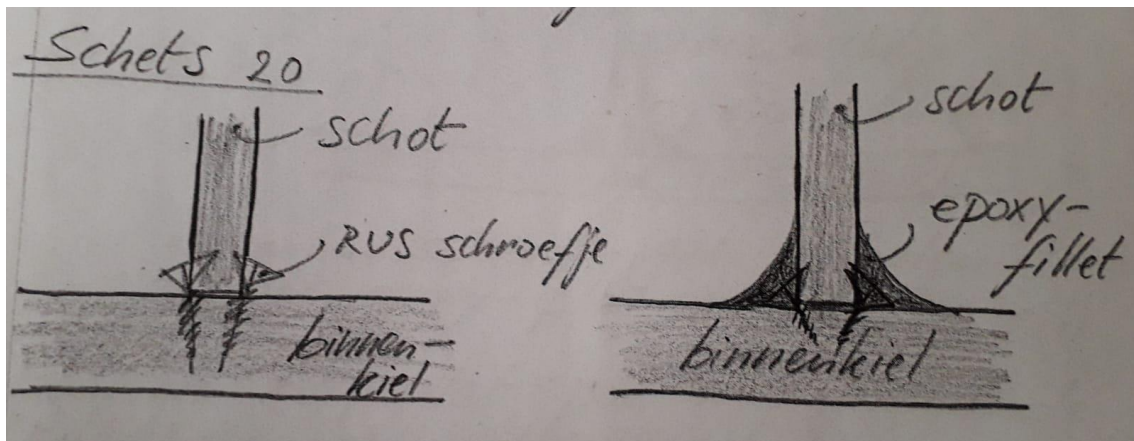 Schets 20
schot
RVS schroefje
binnen-
kiel
schot
epoxy-
fillet
binnenkiel